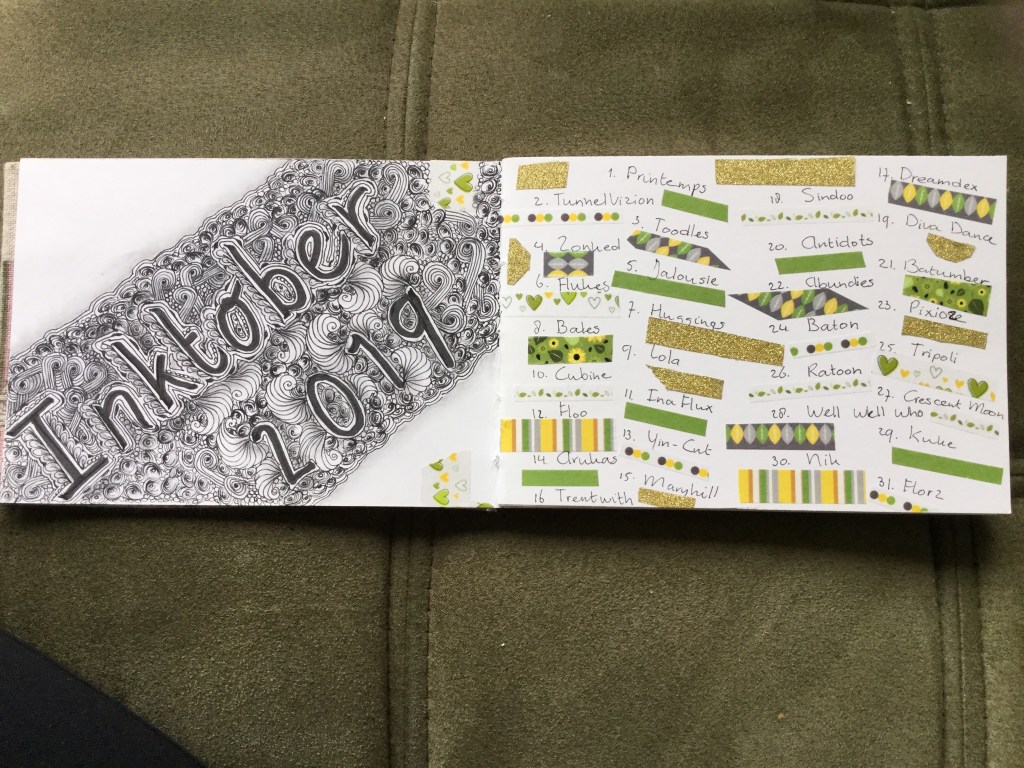 Inktober
2019
1. Printemps
2. TunnelVizion
3. Toodles
4. Zonked
5. Jalousie
6. Flukes
7. Huggings
8. Bales
9. Lola
10. Cubine
11. Ina Flux
12. Floo
13. Yin-Cut
14. Arukas
15. Maryhill
16. Trentwith
17. Dreamdex
18. Sindoo
19. Diva Dance
20. Antidots
21. Batumber
22. Abundies
23. Pixioze
24. Baton
25. Tripoli
26. Ratoon
27. Crescent Moon
28. Well Well Who
29. Kuke
30. Nik
31. Florz